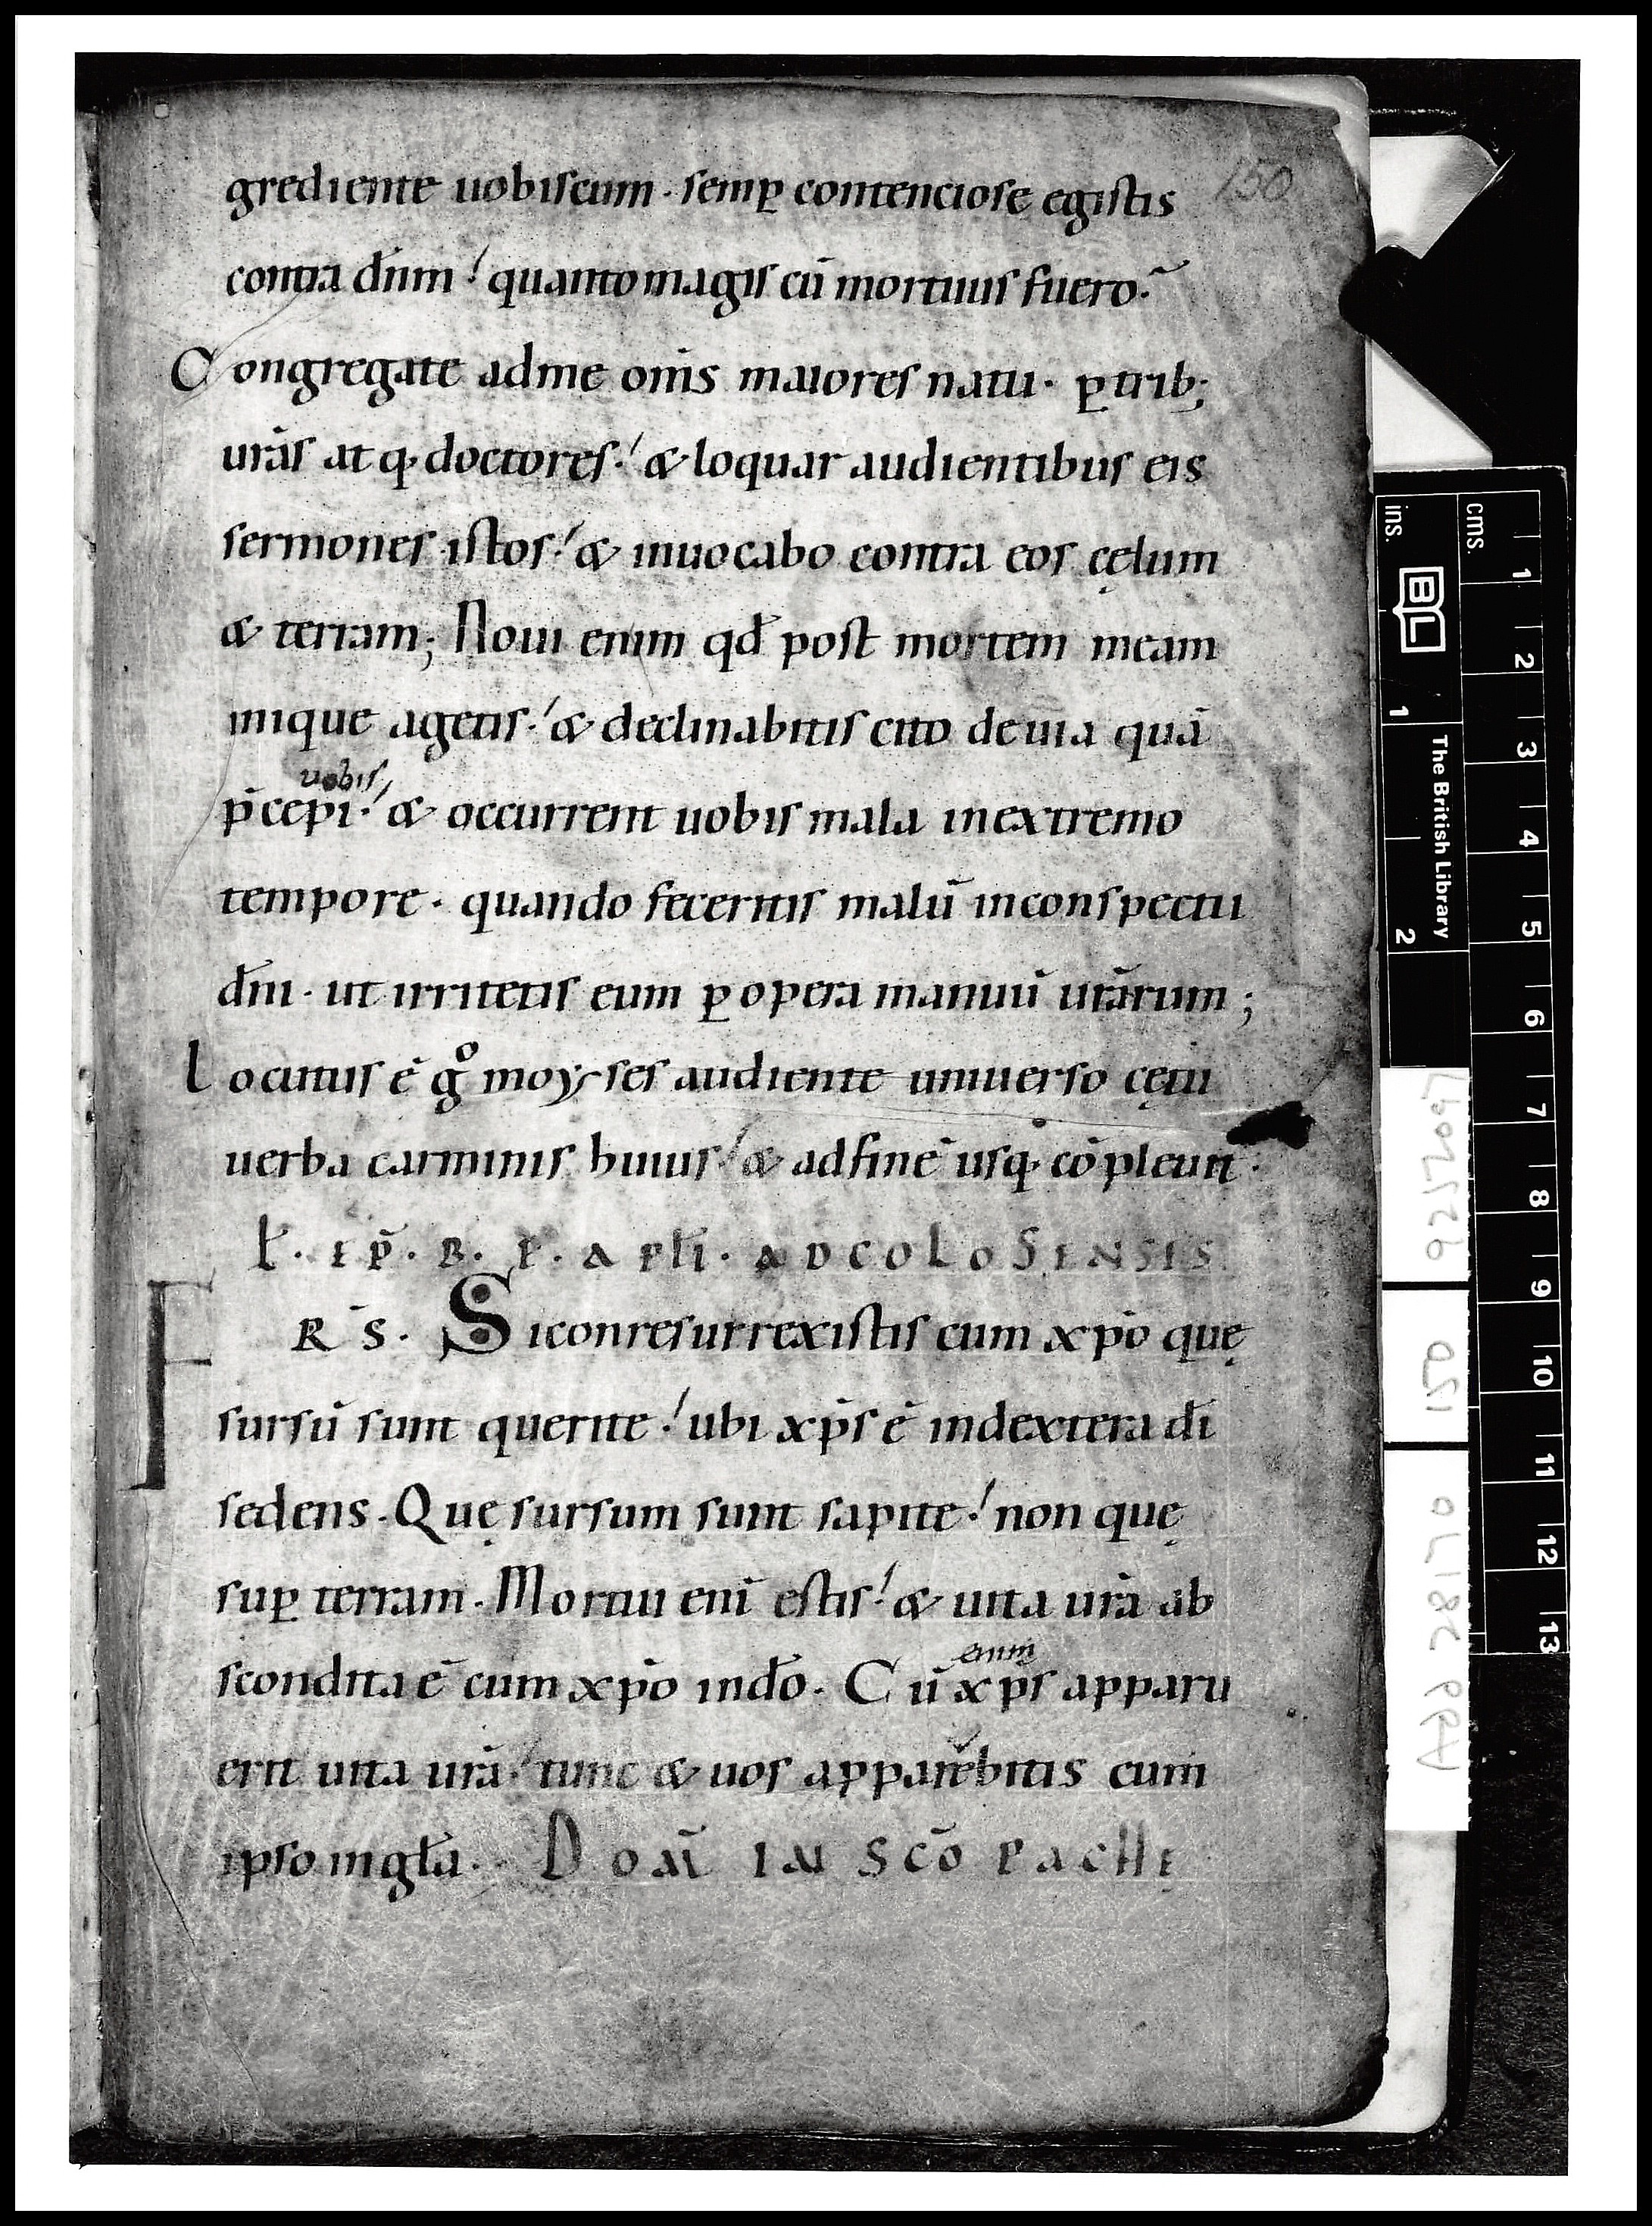 150
grediente uobiscum · semꝑ contenciose egistis
contra dn̄m ! quanto magis cū mortuus fuero.~
Congregate ad me om̄s maiores natu · ꝑ trib;
ur̄as atq· doctores .! & loquar audientibus eis
sermones istos .! & inuocabo contra eos cęlum
& terram; Noui enim qd̄ post mortem meam
inique agetis .! & declinabitis cito de uia quā
uobis
p̄cepi .! & occurrent uobis mala in extremo
tempore · quando feceritis malū in conspectu
dn̄i · ut irritetis eum ꝑ opera manuū ur̄arum ;
Locutus ē gº moyses audiente uniuerso cętu
uerba carminis huius .! & ad finē usq· cōpleuit ·
L̄ · EP̄ · B · P · APLI · AD COLOSENSIS
FR̄S · Si conresurrexistis cum xp̄o quę
sursū sunt querite .! ubi xp̄s ē in dextera dī
sedens · Quę sursum sunt sapite .! non quę
suꝑ terram · Mortui eni̅ estis .! & uita ur̄a ab
enim
scondita ē cum xp̄o in dō · Cū xp̄s apparu
erit uita ur̄a .! tunc & uos apparebitis cum
ipso in gl̄a · DOM̄ IN SCŌ PACHE
cms.
ins.
BL
The British Library
1
2
1
2
3
4
5
6
7
8
9
10
11
12
13